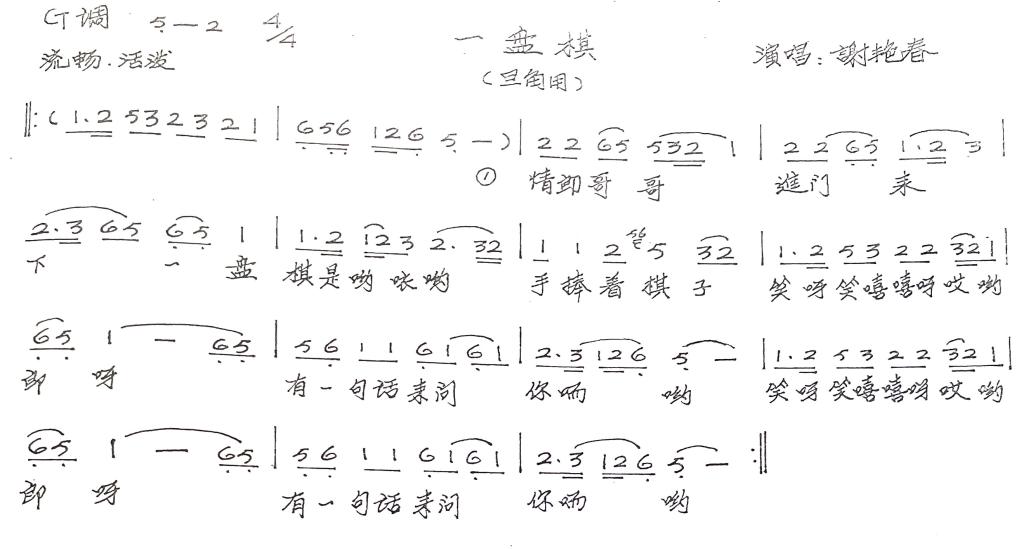 G调 5—2 4/4 一盘棋
流畅.活泼 (旦角用) 演唱：謝艳春
‖:(1.2 53 23 21 | 656 126 5 —)| 22 65 532 1 | 22 65 1.2 3 |
① 情郎哥 哥 進门 来
2.3 65 65 1 | 1.2 123 2.32 | 1 1 2 56 5 32 | 1.2 53 22 321 |
下 一 盘 棋是哟咳哟 手捧着棋子 笑呀笑嘻嘻呀哎哟
65 1 — 65 | 56 11 61 61 | 2.3 126 5 — | 1.2 53 22 321 |
郎 呀 有一句话来问 你哂 哟 笑呀笑嘻嘻呀哎哟
65 1 — 65 | 56 11 61 61 | 2.3 126 5 — :‖
郎 呀 有一句话来问 你哂 哟